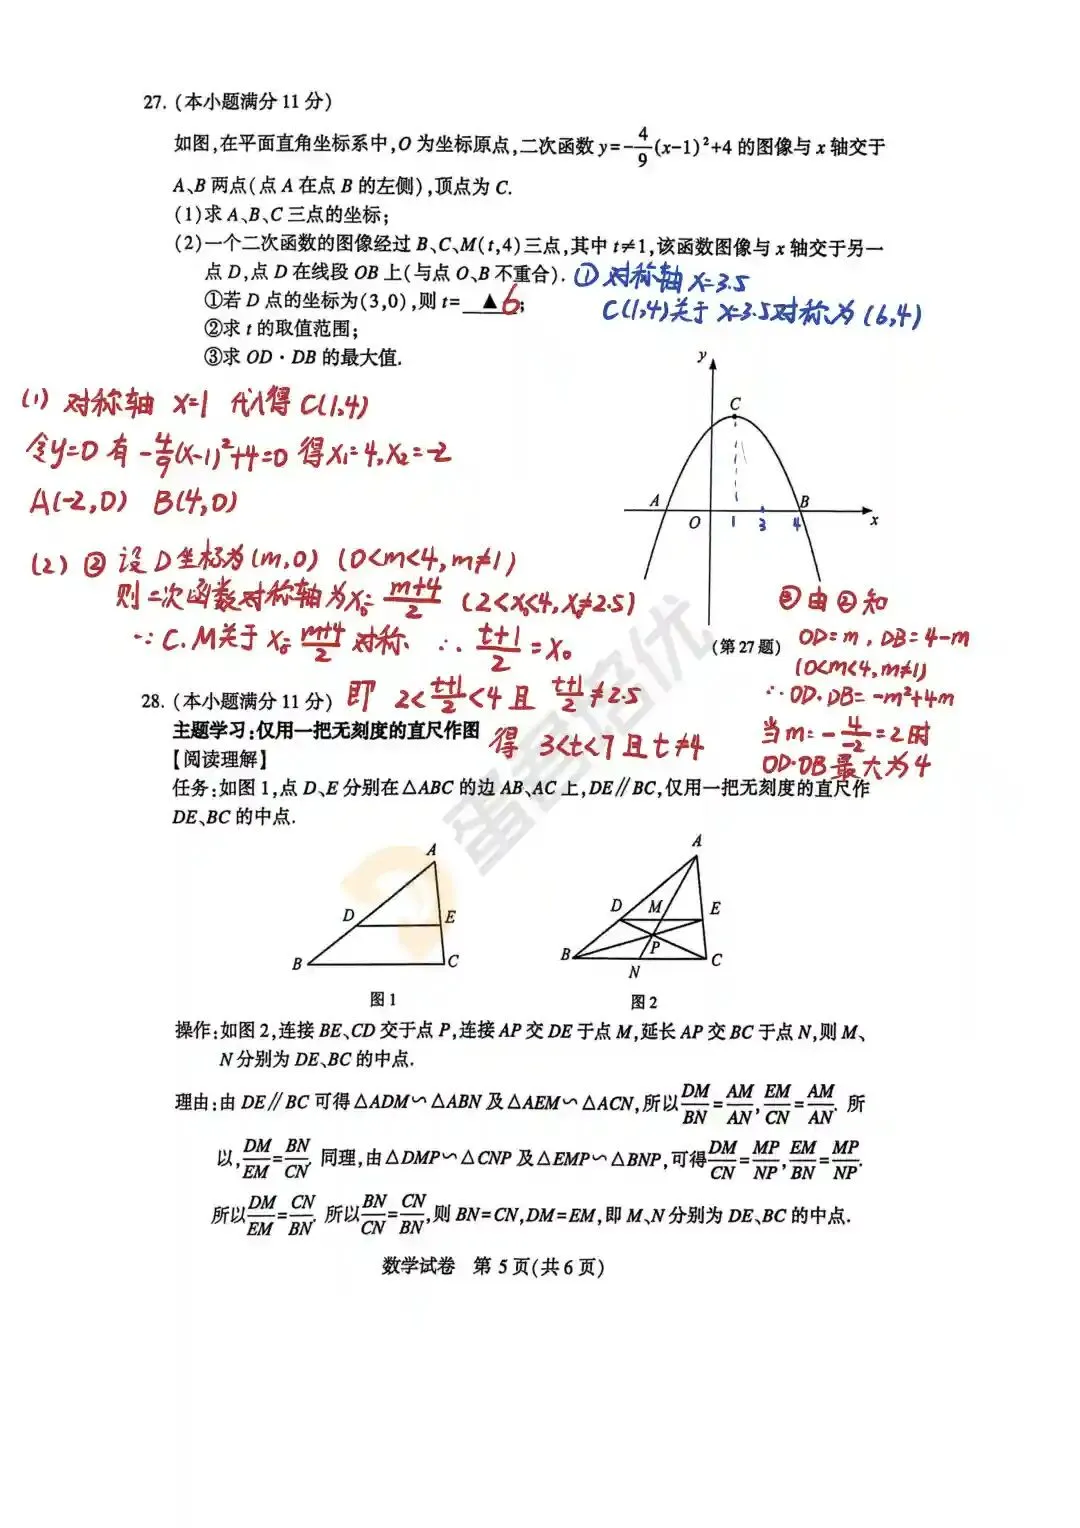 27. (本小题满分 11 分)
如图,在平面直角坐标系中,O 为坐标原点,二次函数 y=-4/9(x-1)²+4 的图像与 x 轴交于
A、B 两点(点 A 在点 B 的左侧),顶点为 C.
(1)求 A、B、C 三点的坐标;
(2)一个二次函数的图像经过 B、C、M(t,4)三点,其中 t≠1,该函数图像与 x 轴交于另一
点 D,点 D 在线段 OB 上(与点 O、B 不重合).
① 对称轴 x=3.5
①若 D 点的坐标为(3,0),则 t= ▲ 6 ;
C(1,4)关于 x=3.5对称为 (6,4)
②求 t 的取值范围;
③求 OD·DB 的最大值.
y
C
A
O
1
3
4
B
x
(第 27 题)
(1) 对称轴 x=1 代入得 C(1,4)
令y=0 有 -4/9(x-1)²+4=0 得 x₁=4,x₂=-2
A(-2,0) B(4,0)
(2) ② 设 D 坐标为(m,0) (0<m<4,m≠1)
则二次函数对称轴为x₀=m+4/2 (2<x₀<4,x₀≠2.5)
∵ C.M关于 x₀=m+4/2 对称 ∴ t+1/2 = x₀
即 2<t+1/2<4 且 t+1/2≠2.5
得 3<t<7 且 t≠4
③ 由②知
OD=m , DB=4-m
(0<m<4,m≠1)
∴ OD·DB=-m²+4m
当 m=-4/-2=2时
OD·DB 最大为 4
28. (本小题满分 11 分)
主题学习:仅用一把无刻度的直尺作图
【阅读理解】
任务:如图 1,点 D、E 分别在△ABC 的边 AB、AC 上,DE∥BC,仅用一把无刻度的直尺作
DE、BC 的中点.
A
D
E
B
C
图 1
A
D
M
E
P
B
N
C
图 2
操作:如图 2,连接 BE、CD 交于点 P,连接 AP 交 DE 于点 M,延长 AP 交 BC 于点 N,则 M、
N 分别为 DE、BC 的中点.
理由:由 DE∥BC 可得△ADM∽△ABN 及△AEM∽△ACN,所以DM/BN=AM/AN,EM/CN=AM/AN. 所
以,DM/EM=BN/CN. 同理,由△DMP∽△CNP 及△EMP∽△BNP,可得DM/CN=MP/NP,EM/BN=MP/NP.
所以DM/EM=CN/BN. 所以BN/CN=CN/BN,则 BN=CN,DM=EM,即 M、N 分别为 DE、BC 的中点.
数学试卷 第 5 页(共 6 页)
蛋哥培优